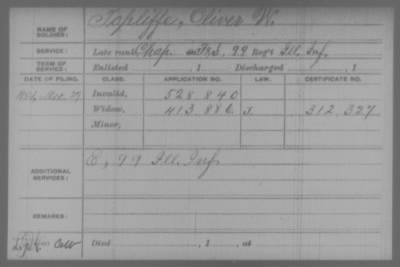 NAME OF SOLDIER: Topliffe, Oliver W.
SERVICE: Late rank, Chap. F&S, 99 Reg't Ill. Inf.
TERM OF SERVICE: Enlisted , 1 Discharged , 1
DATE OF FILING. CLASS. APPLICATION NO. LAW. CERTIFICATE NO.
Nov. 27 Invalid, 528.840
Widow, 413.886 312.327
Minor,
ADDITIONAL SERVICES: C, 99 Ill. Inf.
REMARKS:
Died , 1 , at